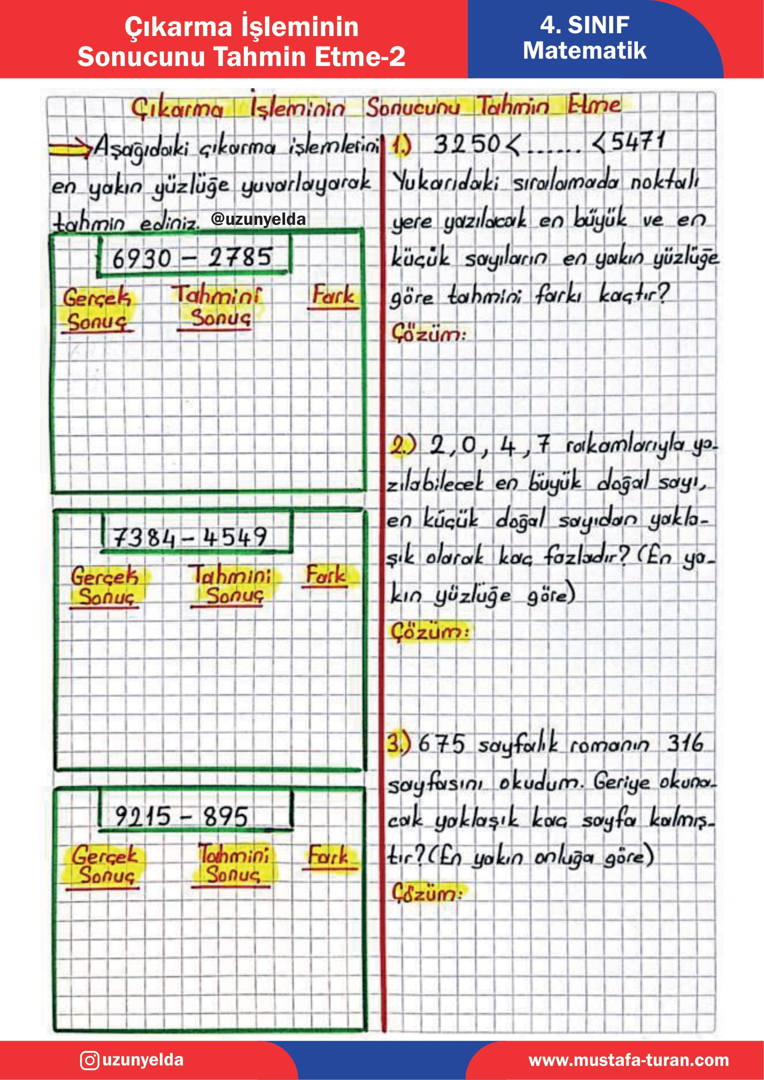 Çıkarma İşleminin
Sonucunu Tahmin Etme-2
4. SINIF
Matematik
Çıkarma İşleminin Sonucunu Tahmin Etme
Aşağıdaki çıkarma işlemlerini
en yakın yüzlüğe yuvarlayarak
tahmin ediniz. @uzunyelda
6930 - 2785
Gerçek Sonuç
Tahmini Sonuç
Fark
7384 - 4549
Gerçek Sonuç
Tahmini Sonuç
Fark
9215 - 895
Gerçek Sonuç
Tahmini Sonuç
Fark
1.) 3250 < ...... < 5471
Yukarıdaki sıralamada noktalı
yere yazılacak en büyük ve en
küçük sayıların en yakın yüzlüğe
göre tahmini farkı kaçtır?
Çözüm:
2.) 2, 0, 4, 7 rakamlarıyla ya-
zılabilecek en büyük doğal sayı,
en küçük doğal sayıdan yakla-
şık olarak kaç fazladır? (En ya-
kın yüzlüğe göre)
Çözüm:
3.) 675 sayfalık romanın 316
sayfasını okudum. Geriye okuna-
cak yaklaşık kaç sayfa kalmış-
tır? (En yakın onluğa göre)
Çözüm:
uzunyelda
www.mustafa-turan.com